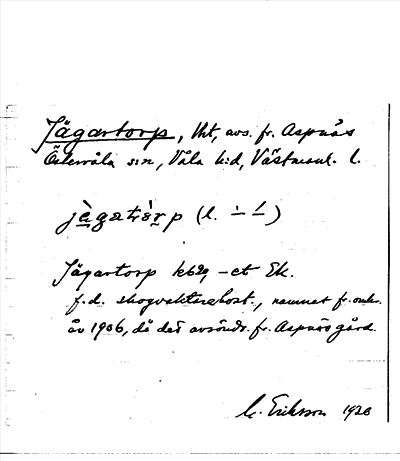 Jägartorp, lht, avs. fr. Aspnäs
Östervåla s:n, Våla h:d, Västmanl. l.
jàgatàrp (l. –̀ –́)
Jägartorp k629 – et Ek.
f.d. skogvaktarebost., namnet fr. omkr.
år 1906, då det avsöndr. fr. Aspnäs gård.
M. Eriksson 1928